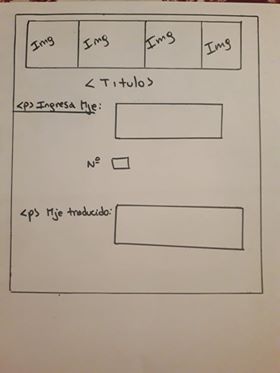 Img Img Img Img
<Titulo>
<p> Ingresa Mje:
Nº
<p> Mje traducido: